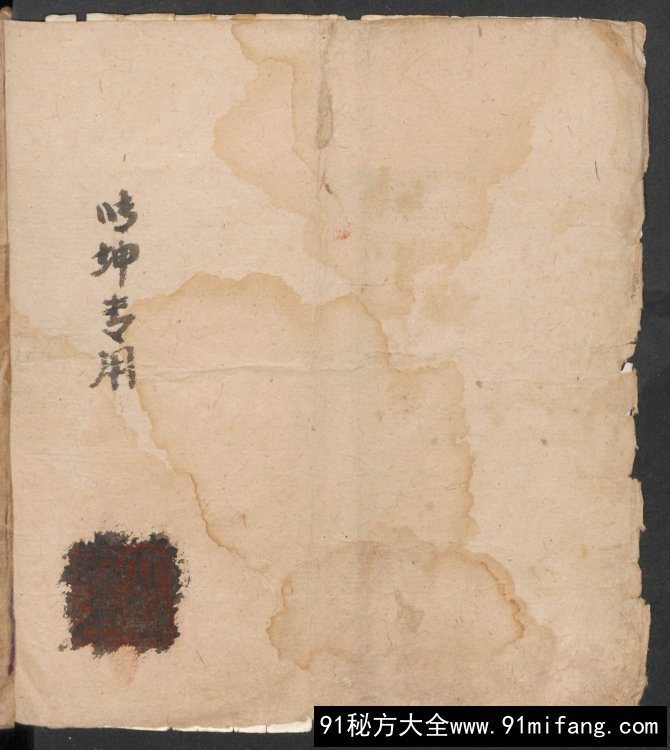 坤专用
91秘方大全www.91mifang.com